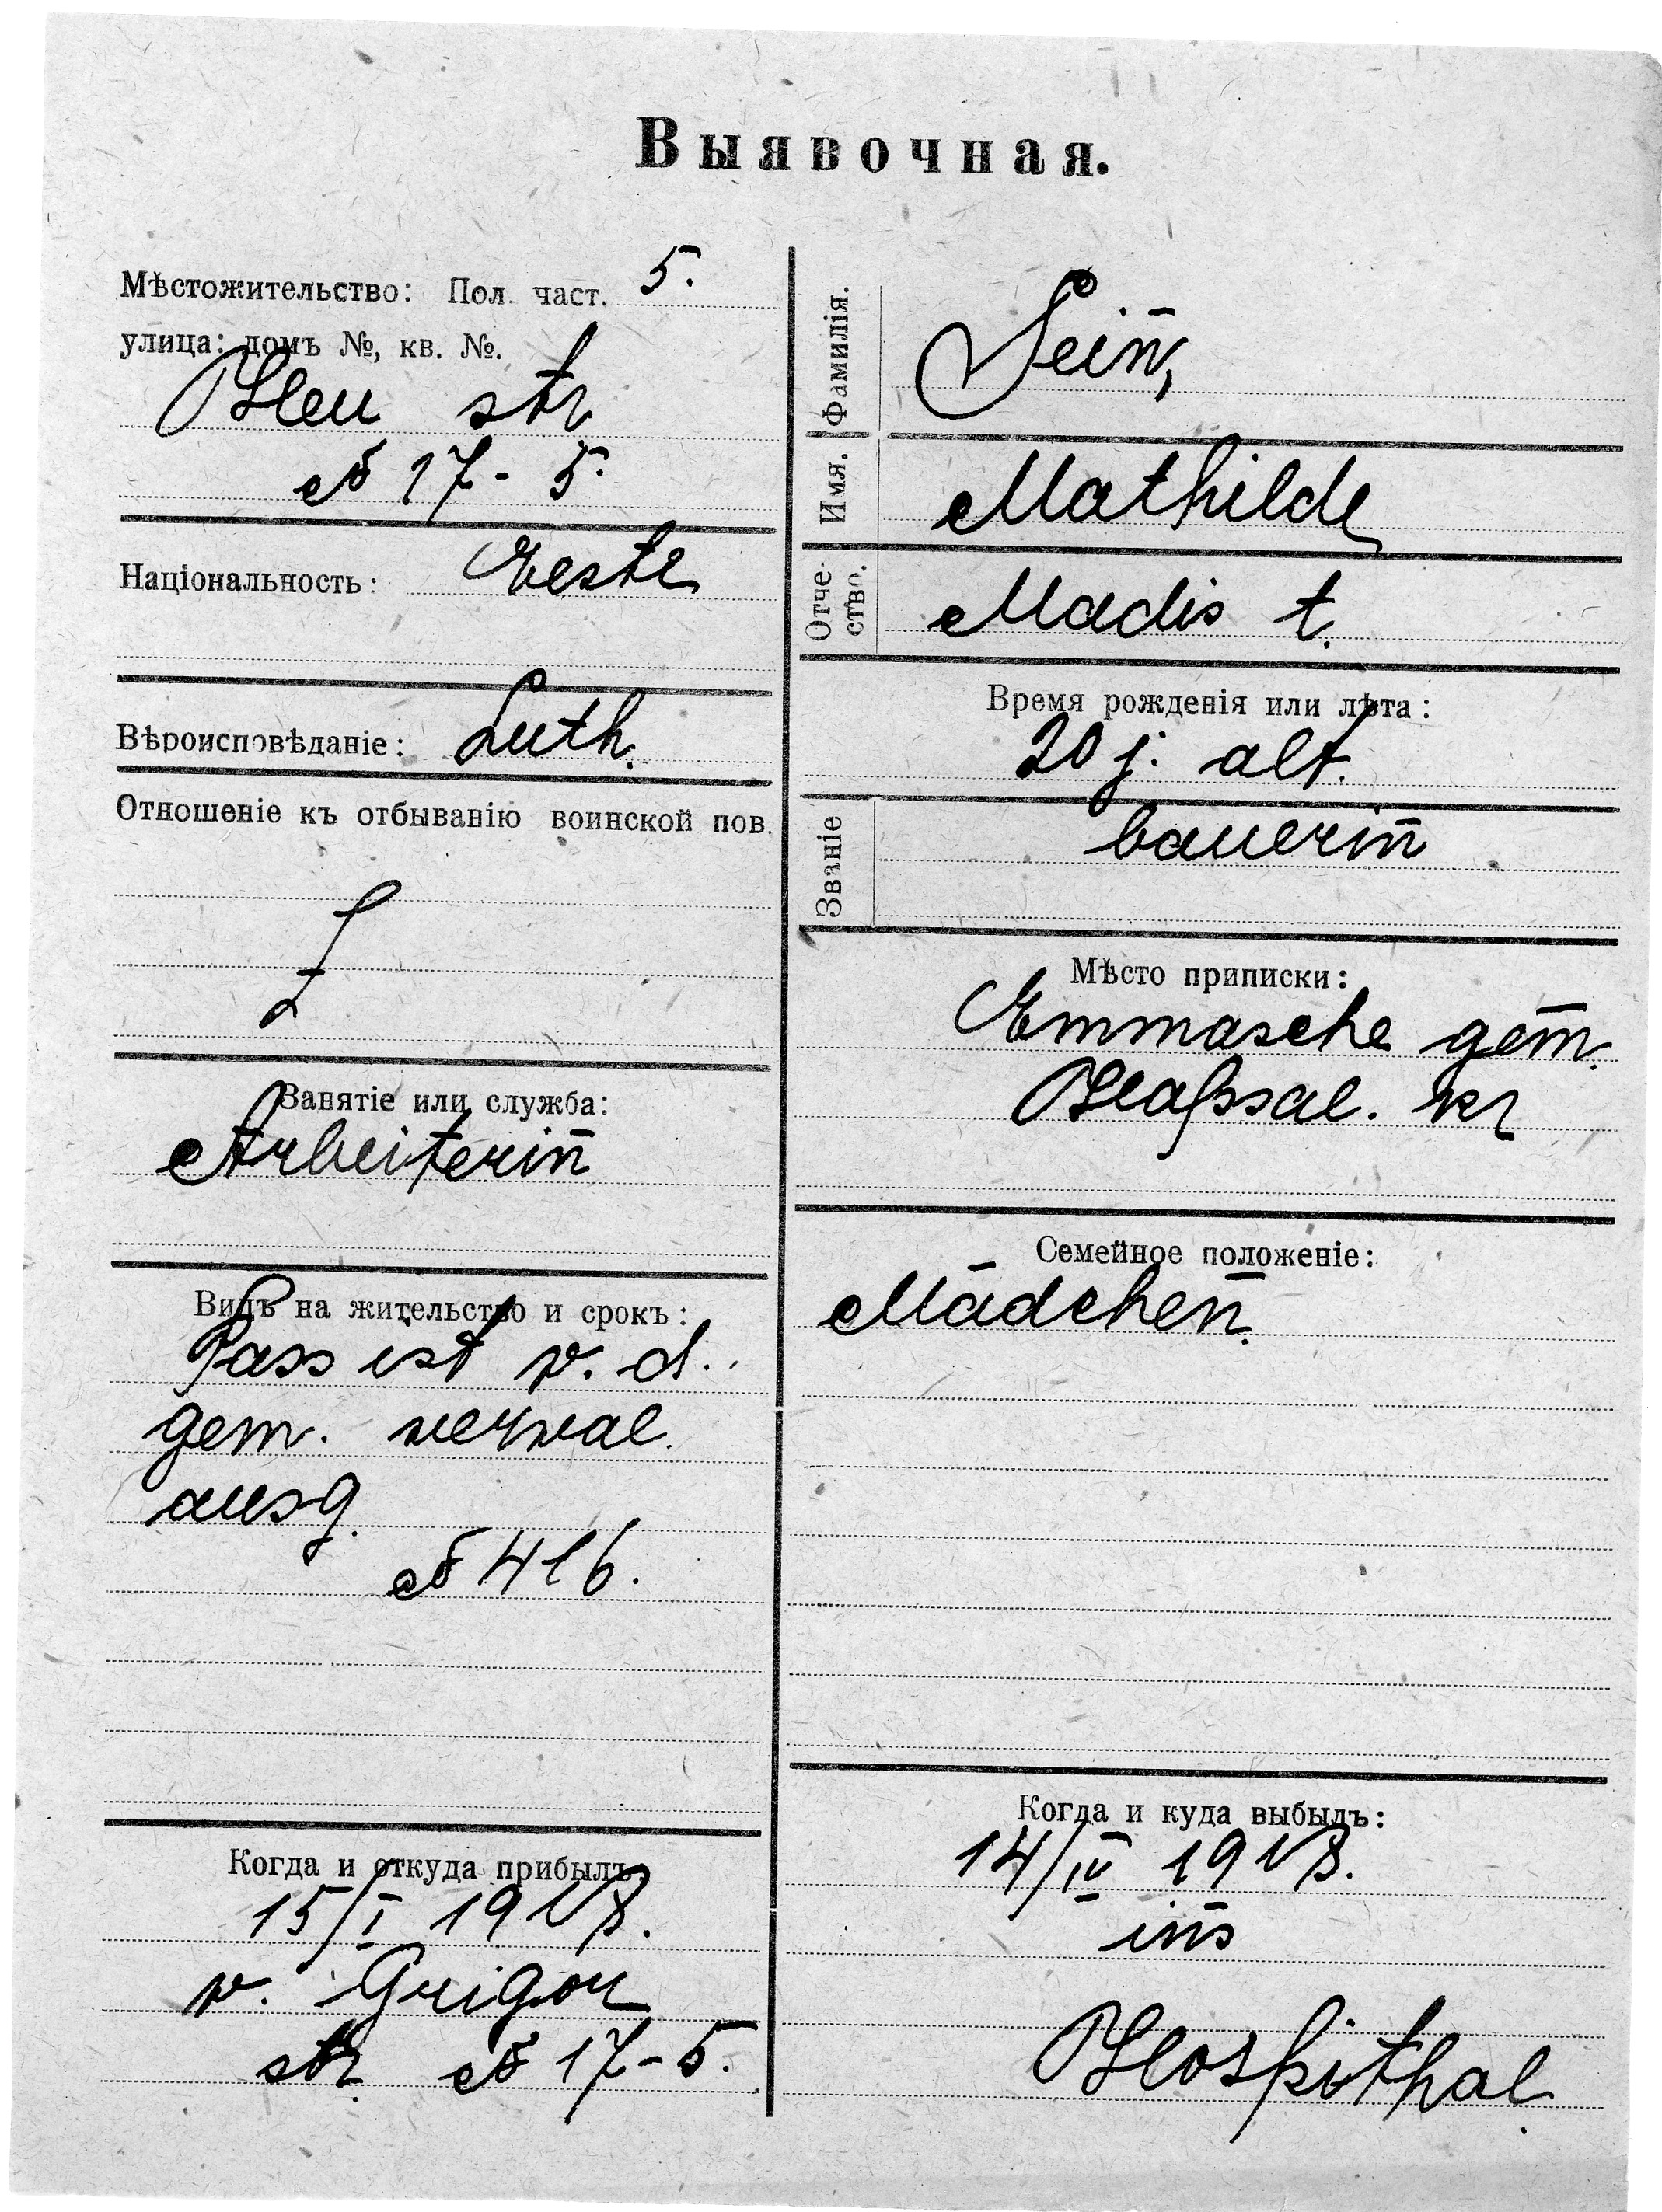 Выявочная.
Мѣстожительство: Пол. част. 5.
улица: домъ №, кв. №.
Heu str
№ 17 - 5.
Національность: Eeste
Вѣроисповѣданіе: Luth.
Отношеніе къ отбыванію воинской пов.
Занятіе или служба:
Arbeiterin̄
Видъ на жительство и срокъ:
Pass ist v. d.
gem. verwal.
ausg.
№ 416.
Когда и откуда прибылъ:
15/I 1918.
v. Grigor
str. № 17 - 5.
Фамилія. Sein̄,
Имя. Mathilde
Отче-
ство. Madis t.
Время рожденія или лѣта:
20 j. alt.
Званіе bauerin̄
Мѣсто приписки:
Emmasche gem̄.
Hapsal. kr
Семейное положеніе:
Mädchen̄.
Когда и куда выбылъ:
14/IV 1918.
in̄s
Hospithal